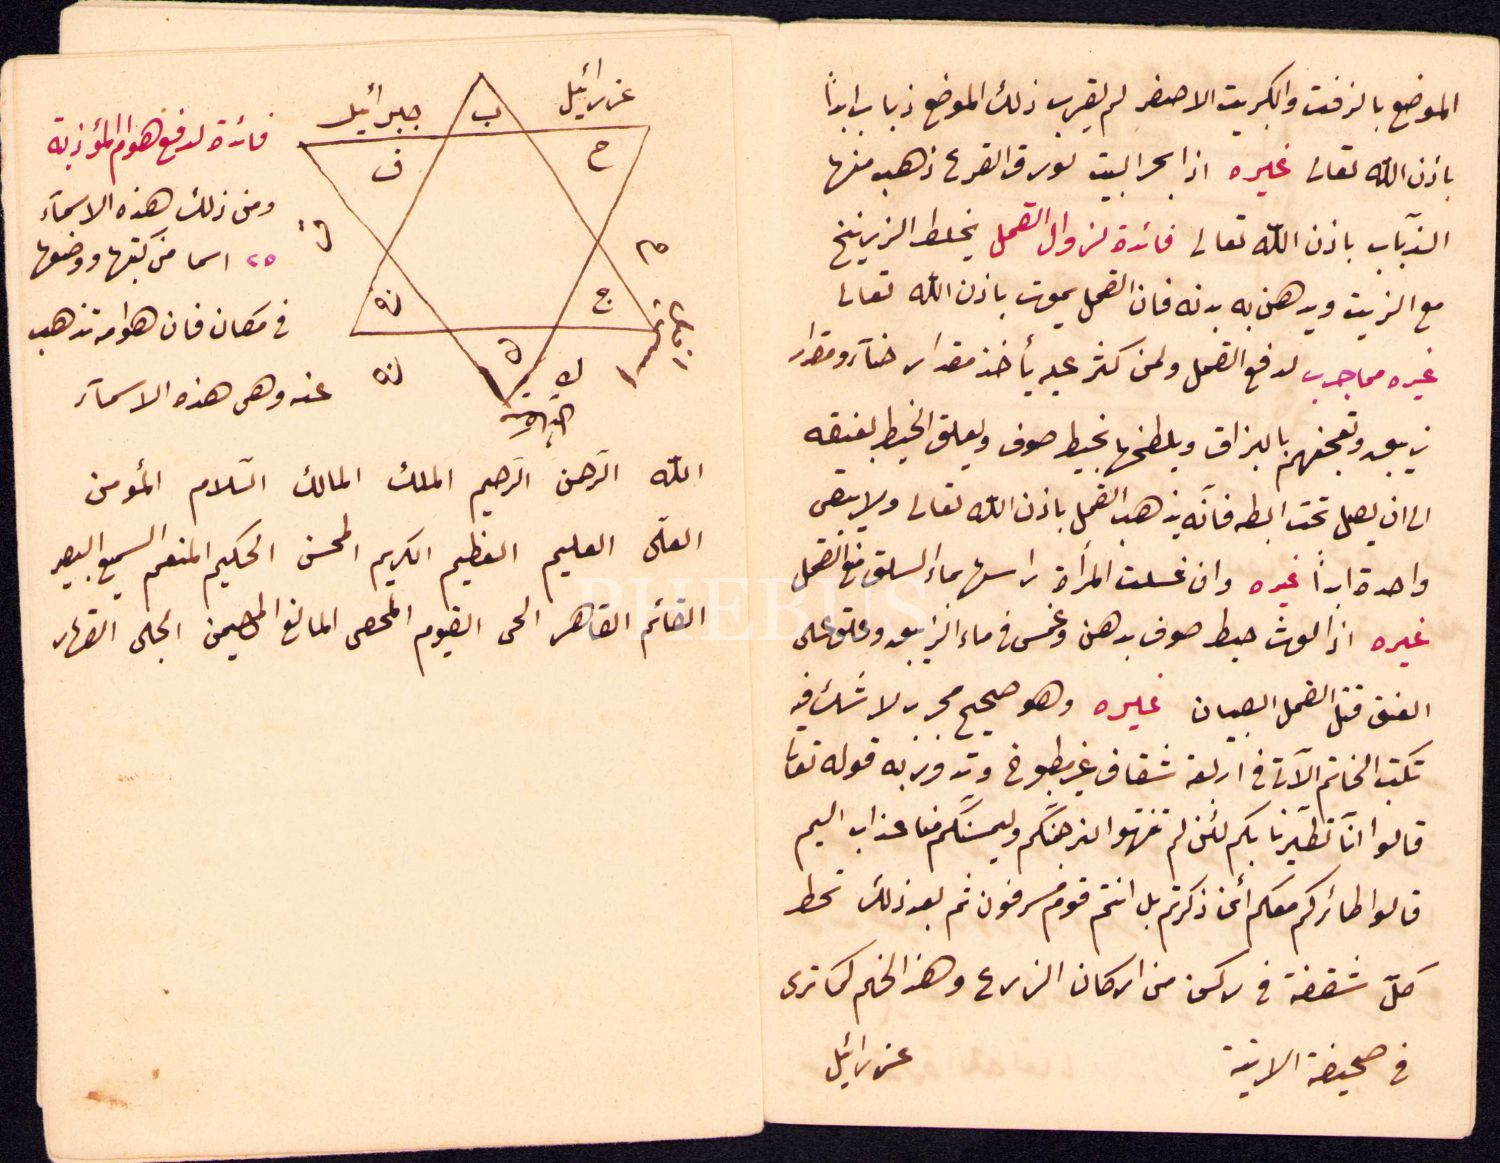 الموضع بالزفت والكبريت الاصفر لم يقرب ذلك الموضع ذباب ابداً
باذن الله تعالى غيره اذا بخر البيت بورق القرع ذهب منها
الذباب باذن الله تعالى فائدة لزوال القمل يخلط الزرنيخ
مع الزيت ويدهن به بدنه فان القمل يموت باذن الله تعالى
غيره مما جرب لدفع القمل ولمن كثر عليه يأخذ مقدار حناء ومقدار
زيبق وتعجنهم بالبزاق ويلطخها بخيط صوف ويعلق الخيط بعنقه
الى ان يصل تحت ابطه فانّه يذهب القمل باذن الله تعالى ولا يبقى
واحدة ابداً غيره وان غسلت المرأة راسها بماء السلق منع القمل
غيره اذا لوث خيط صوف بدهن وغمس في ماء الزيبق وعلق على
العنق قتل القمل الصيبان غيره وهو صحيح مجرب لا شك فيه
تكتب الخاتم الآتى في اربعة شقاف غير مطبوخ وتدور به قوله تعالى
قالوا انّا تطيّرنا بكم لئن لم تنتهوا لنرجمنّكم وليمسنّكم منا عذاب اليم
قالوا طائركم معكم أئن ذكرتم بل انتم قوم مسرفون ثم بعد ذلك تحط
كلّ شقفة في ركن من اركان الزرع وهذا الختم كما ترى
في صحيفة الاتية
عزرائيل
عزرائيل
جبرائيل
ب
ح
ف
م
ج
ك
فائدة لدفع هوام المؤذية
ومن ذلك هذه الاسمآء
٢٥ اسما من كتبها ووضعها
في مكان فان هوامه تذهب
عنه وهي هذه الاسمآء
الله الرّحمن الرّحيم الملك المالك السّلام المؤمن
العلّى العليم العظيم الكريم المحسن الحكيم المنعم السميع البصير
القائم القاهر الحى القيوم المحصى المانع المهيمن الجلى القهار
PHEBUS